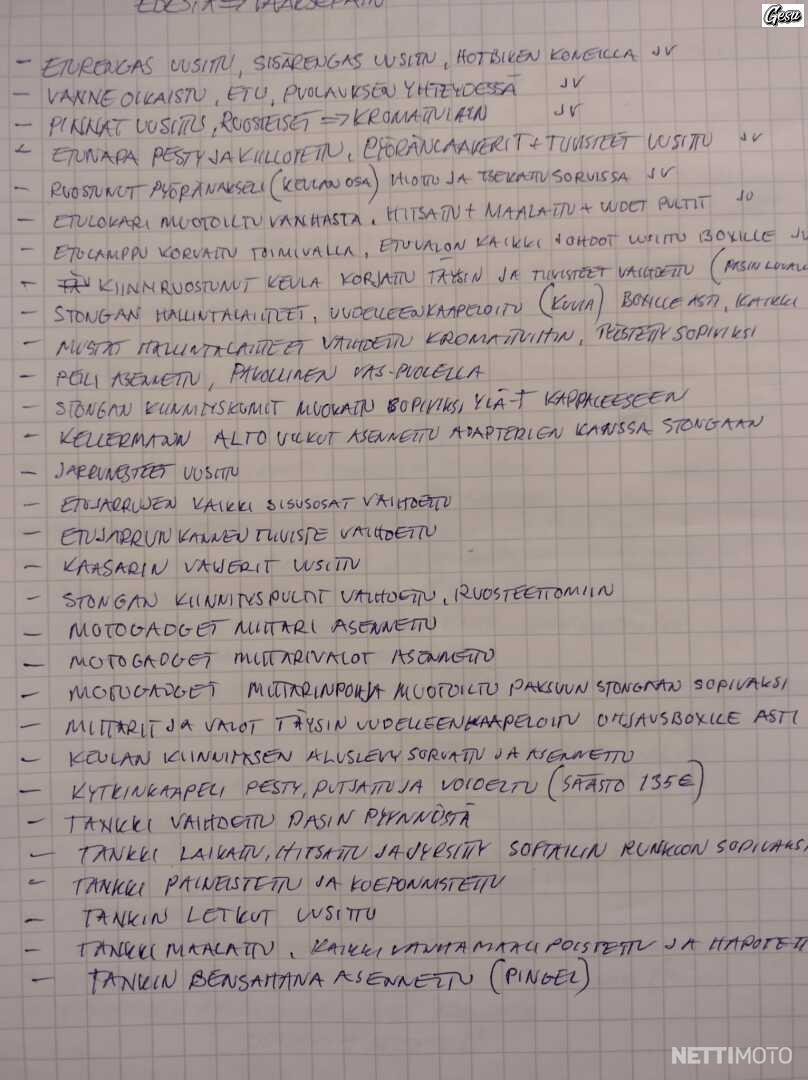 EDESTÄ => TAAKSEPÄIN
Gesu
- ETURENGAS UUSITTU, SISÄRENGAS UUSITTU, HOTBIKEN KONEILLA JV
- VANNE OIKAISTU, ETU, PUOLAUKSEN YHTEYDESSÄ JV
- PINNAT UUSITTU, RUOSTEISET => KROMATTUIHIN JV
- ETUNAPA PESTY JA KIILLOTETTU, PYÖRÄNLAAKERIT + TIIVISTEET UUSITTU JV
- RUOSTUNUT PYÖRÄNAKSELI (KEULAN OSA) HIOTTU JA TSEKATTU SORVISSA JV
- ETULOKARI MUOTOILTU VANHASTA, HITSATTU + MAALATTU + UUDET PULTIT JV
- ETULAMPPU KORVATTU TOIMIVALLA, ETUVALON KAIKKI JOHDOT UUSITTU BOXILLE JV
- KIINNIRUOSTUNUT KEULA KORJATTU TÄYSIN JA TIIVISTEET VAIHDETTU (PASIN LUVALLA
- STONGAN HALLINTALAITTEET, UUDELLEENKAAPELOITU (KUVIA) BOXILLE ASTI, KAIKKI
- MUSTAT HALLINTALAITTEET VAIHDETTU KROMATTUIHIN, TEETETTY SOPIVIKSI
- PEILI ASENNETTU, PAKOLLINEN VAS-PUOLELLA
- STONGAN KIINNITYSKUMIT MUOKATTU SOPIVIKSI YLÄ-T KAPPALEESEEN
- KELLERMANN ALTO VILKUT ASENNETTU ADAPTERIEN KANSSA STONGAAN
- JARRUNESTEET UUSITTU
- ETUJARRUJEN KAIKKI SISUSOSAT VAIHDETTU
- ETUJARRUN KANNEN TIIVISTE VAIHDETTU
- KAASARIN VAIJERIT UUSITTU
- STONGAN KIINNITYSPULTIT VAIHDETTU, RUOSTEETTOMIIN
- MOTOGADGET MITTARI ASENNETTU
- MOTOGADGET MITTARIVALOT ASENNETTU
- MOTOGADGET MITTARINPOHJA MUOTOILTU PAKSUUN STONGAAN SOPIVAKSI
- MITTARIT JA VALOT TÄYSIN UUDELLEENKAAPELOITU OHJAUSBOXILLE ASTI
- KEULAN KIINNITYKSEN ALUSLEVY SORVATTU JA ASENNETTU
- KYTKINKAAPELI PESTY, PUTSATTU JA VOIDELTU (SÄÄSTÖ 135€)
- TANKKI VAIHDETTU PASIN PYYNNÖSTÄ
- TANKKI LAIKATTU, HITSATTU JA JYRSITTY SOFTAILIN RUNKOON SOPIVAKSI
- TANKKI PAINEISTETTU JA KOEPONNISTETTU
- TANKIN LETKUT UUSITTU
- TANKKI MAALATTU, KAIKKI VANHA MAALI POISTETTU JA HAPOTETT
- TANKIN BENSAHANA ASENNETTU (PINGEL)
NETTIMOTO